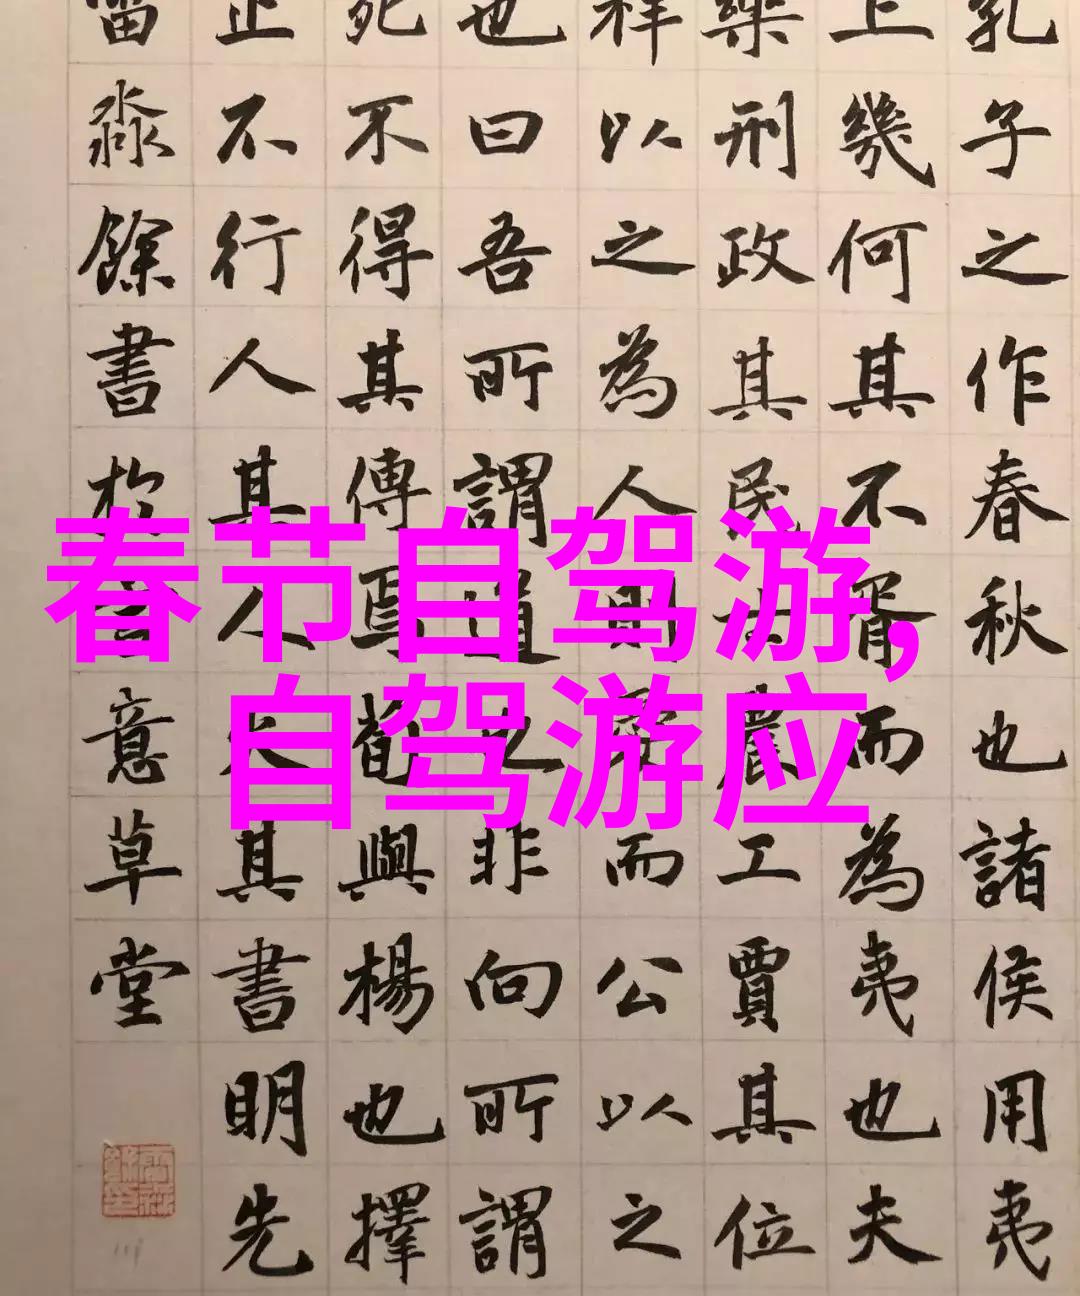 春节自驾游,
自驾游应
孔子之作春秋也諸侯用夷
上幾何其不胥而為夷也夫
樂刑政其民士農工賈其位
祥以之為人則愛而公以之
也曰吾所謂道也非向所謂
死不得其傳焉荀與楊也擇
止不行人其人火其書明先
淼餘書於意草堂